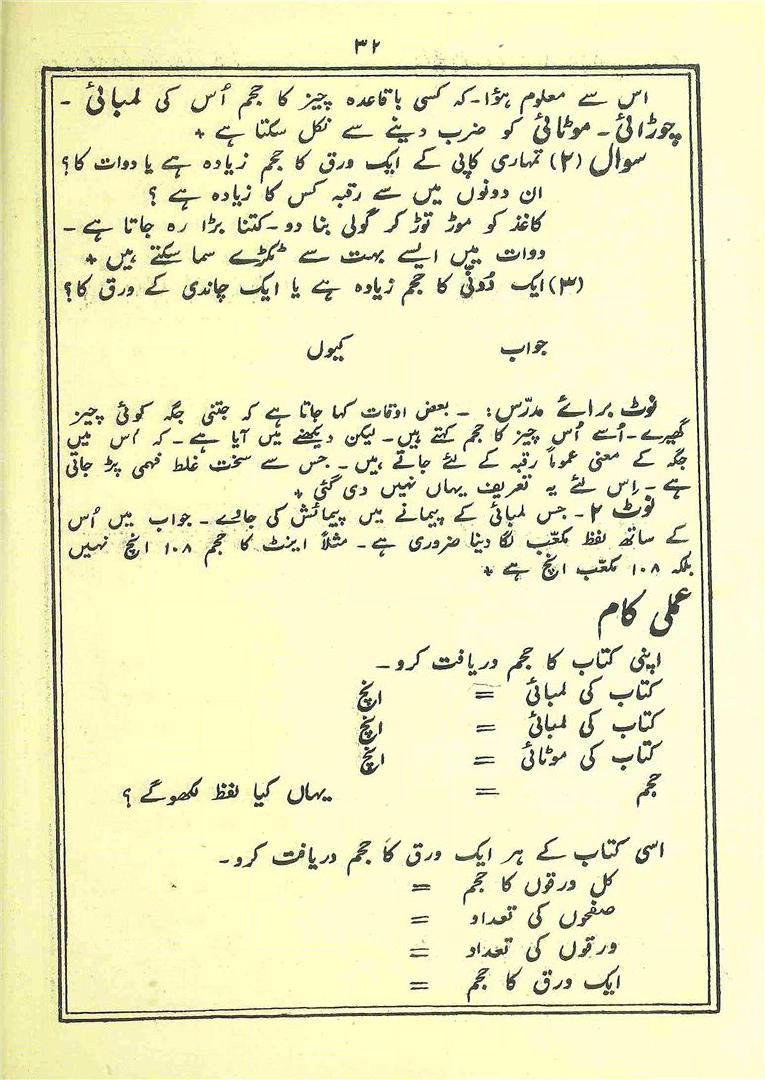 ۳۲
اس سے معلوم ہؤا۔ کہ کسی باقاعدہ چیز کا حجم اُس کی لمبائی ۔
چوڑائی ۔ موٹائی کو ضرب دینے سے نکل سکتا ہے +
سوال (۲) تمہاری کاپی کے ایک ورق کا حجم زیادہ ہے یا دوات کا؟
ان دونوں میں سے رقبہ کس کا زیادہ ہے ؟
کاغذ کو موڑ توڑ کر گولی بنا دو۔ کتنا بڑا رہ جاتا ہے ۔
دوات میں ایسے بہت سے ٹکڑے سما سکتے ہیں +
(۳) ایک دُونّی کا حجم زیادہ ہے یا ایک چاندی کے ورق کا؟
جواب کیوں
نوٹ برائے مدرّس: ۔ بعض اوقات کہا جاتا ہے کہ جتنی جگہ کوئی چیز
گھیرے۔ اُسے اُس چیز کا حجم کہتے ہیں۔ لیکن دیکھنے میں آیا ہے ۔ کہ اس میں
جگہ کے معنی عموماً رقبہ کے لئے جاتے ہیں ۔ جس سے سخت غلط فہمی پڑ جاتی
ہے ۔ اِس لئے یہ تعریف یہاں نہیں دی گئی +
نوٹ ۲ ۔ جس لمبائی کے پیمانے میں پیمائش کی جاوے ۔ جواب میں اُس
کے ساتھ لفظ مکعّب لگا دینا ضروری ہے ۔ مثلاً اینٹ کا حجم ۱۰۸ انچ نہیں
بلکہ ۱۰۸ مکعّب انچ ہے +
عملی کام
اپنی کتاب کا حجم دریافت کرو ۔
کتاب کی لمبائی = انچ
کتاب کی لمبائی = انچ
کتاب کی موٹائی = انچ
حجم = یہاں کیا لفظ لکھوگے ؟
اسی کتاب کے ہر ایک ورق کا حجم دریافت کرو ۔
کل ورقوں کا حجم =
صفحوں کی تعداد =
ورقوں کی تعداد =
ایک ورق کا حجم =